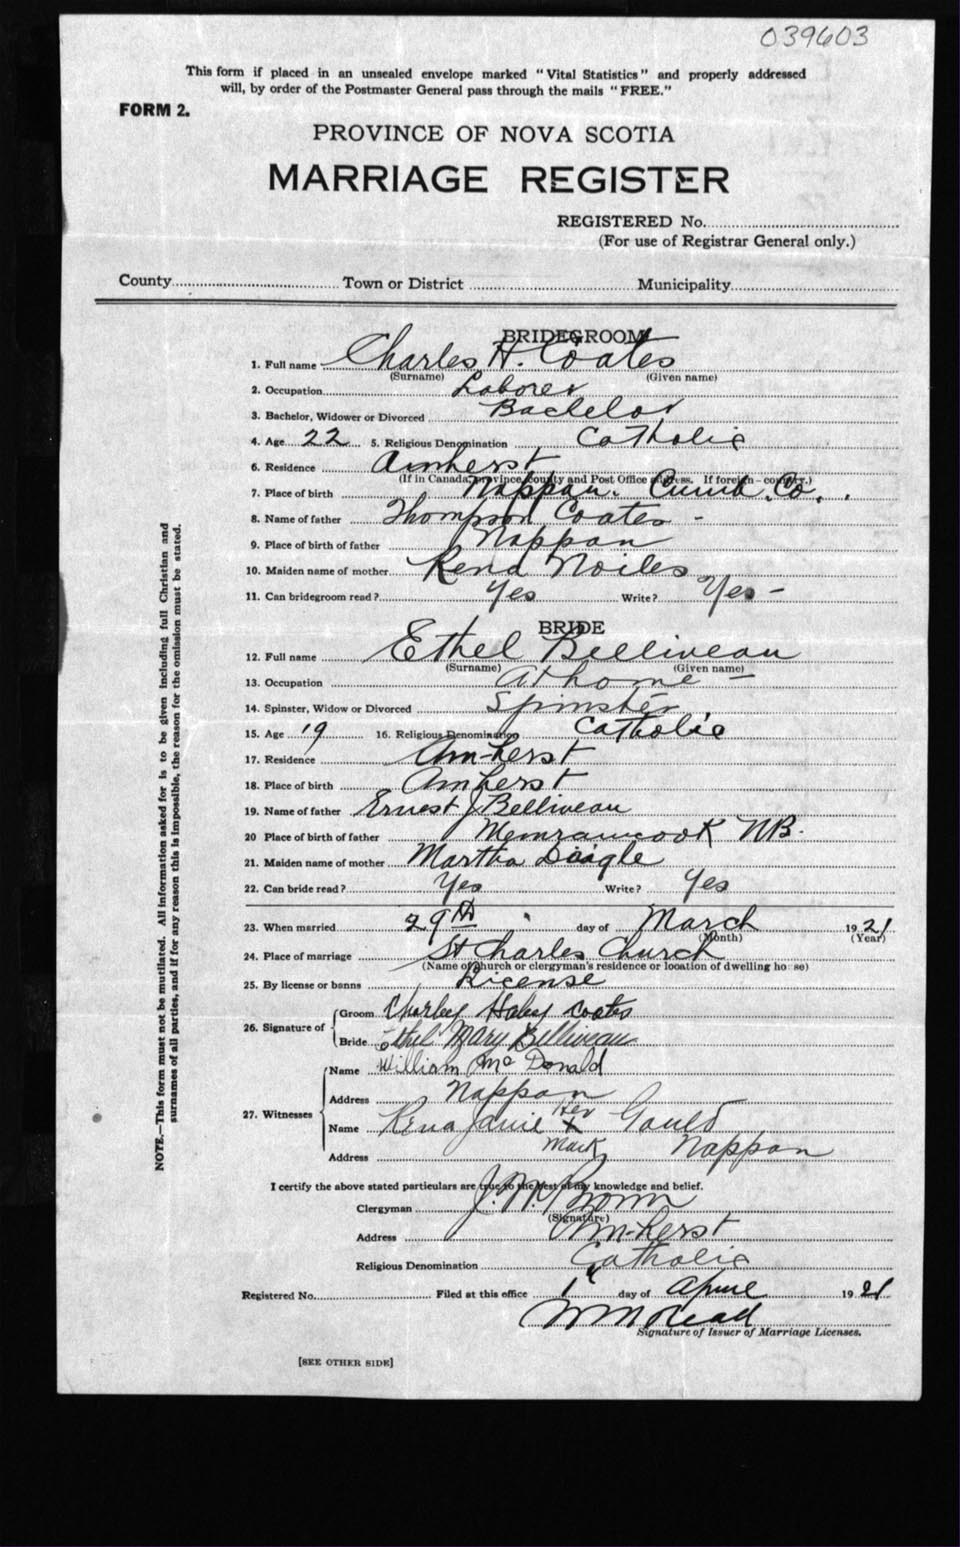 039603
This form if placed in an unsealed envelope marked "Vital Statistics" and properly addressed
will, by order of the Postmaster General pass through the mails "FREE."
FORM 2.
PROVINCE OF NOVA SCOTIA
MARRIAGE REGISTER
REGISTERED No.
(For use of Registrar General only.)
County Town or District Municipality
BRIDEGROOM
1. Full name Charles H. Coates
(Surname) (Given name)
2. Occupation Laborer
3. Bachelor, Widower or Divorced Bachelor
4. Age 22 5. Religious Denomination Catholic
6. Residence Amherst
(If in Canada, province, county and Post Office address. If foreign - country.)
7. Place of birth Nappan. Cumb. Co.
8. Name of father Thompson Coates -
9. Place of birth of father Nappan
10. Maiden name of mother Rena Noiles
11. Can bridegroom read? Yes Write? Yes -
BRIDE
12. Full name Ethel Belliveau
(Surname) (Given name)
13. Occupation At home -
14. Spinster, Widow or Divorced Spinster
15. Age 19 16. Religious Denomination Catholic
17. Residence Amherst
18. Place of birth Amherst
19. Name of father Ernest J Belliveau
20 Place of birth of father Memramcook NB.
21. Maiden name of mother Martha Daigle
22. Can bride read? Yes Write? Yes
23. When married 29th day of March 1921
(Month) (Year)
24. Place of marriage St Charles Church
(Name of church or clergyman's residence or location of dwelling house)
25. By license or banns License
26. Signature of Groom Charley Coates
Bride Ethel Mary Belliveau
27. Witnesses Name William McDonald
Address Nappan
Name Rena Janie Her X Mark Gould
Address Nappan
I certify the above stated particulars are true to the best of my knowledge and belief.
Clergyman Brown
(Signature)
Address Amherst
Religious Denomination Catholic
Registered No. Filed at this office 1st day of April 1921
Signature of Issuer of Marriage Licenses.
[SEE OTHER SIDE]
NOTE.—This form must not be mutilated. All information asked for is to be given including full Christian and
surnames of all parties, and if for any reason this is impossible, the reason for the omission must be stated.